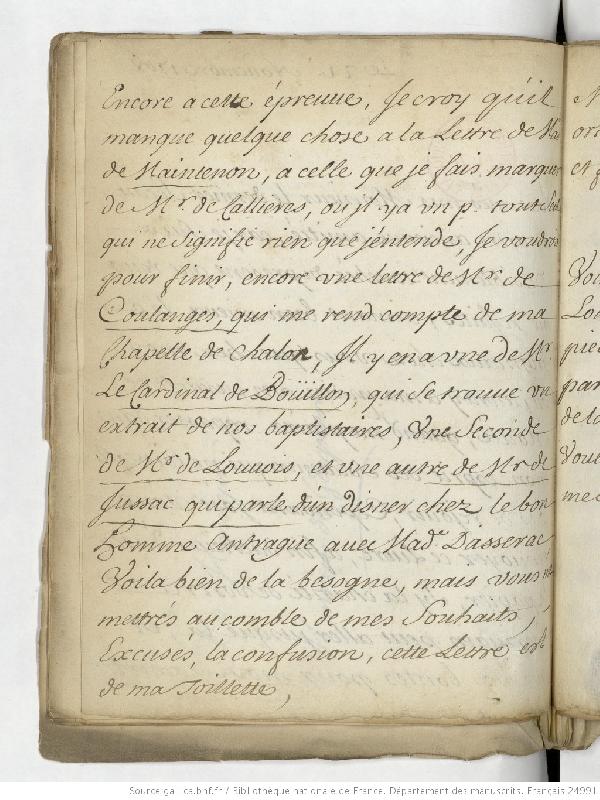 Encore a cette épreuue, Je croy qu'il
manque quelque chose a la Lettre de Mad.
de Maintenon, a celle que je fais marquer
de Mr. de Callieres, ou jl y a vn p. tout seul
qui ne signifie rien que j'entende, Je voudrois
pour finir, encore vne lettre de Mr. de
Coulanges, qui me rend compte de ma
Chapelle de Chalon, Jl y en a vne de Mr.
Le Cardinal de Boüillon, qui se trouue vn
extrait de nos baptistaires, Vne Seconde
de Mr. de Louuois, et vne autre de Mr. de
Jussac qui parle d'un disner chez le bon
homme Antrague auec Mad.e Dasserac
Voila bien de la besogne, mais vous me
mettrés au comble de mes Souhaits,
Excusés, la confusion, cette Lettre est
de ma Toillette,
Source gallica.bnf.fr / Bibliothèque nationale de France. Département des manuscrits. Français 24991